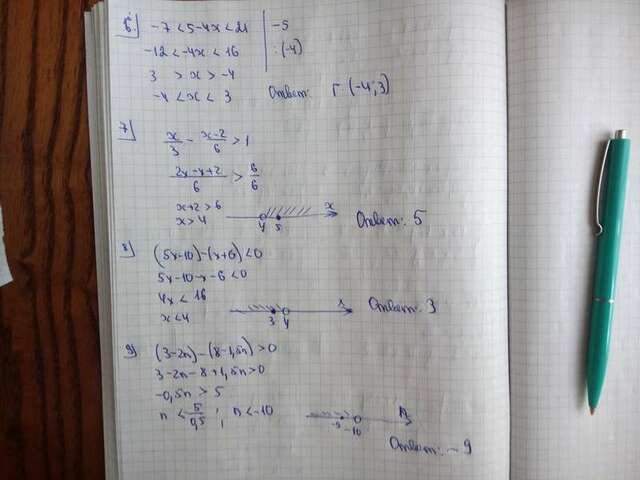 6.
-7 < 5 - 4x < 21 | -5
-12 < -4x < 16 | : (-4)
3 > x > -4
-4 < x < 3
Ответ: Г (-4; 3)
7
x/3 - (x-2)/6 > 1
(2x - x + 2)/6 > 6/6
x + 2 > 6
x > 4
4 5 x
Ответ: 5
8
(5y - 10) - (y + 6) < 0
5y - 10 - y - 6 < 0
4y < 16
x < 4
3 4
Ответ: 3
9)
(3 - 2n) - (8 - 1,5n) > 0
3 - 2n - 8 + 1,5n > 0
-0,5n > 5
n < 5/0,5 ; n < -10
-9 -10
Ответ: -9